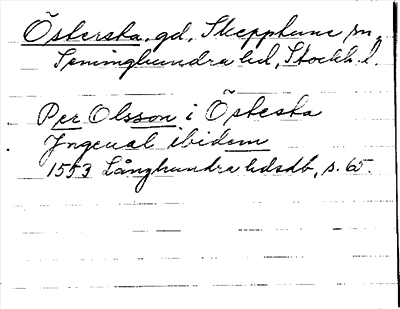 Õsterska, gd, Skepptuna sn,
Seminghundra hd, Stockh. l.
Per Olsson i Õsteska
Jngeual ibidem
1553 Långhundra hdsdb, s. 65.